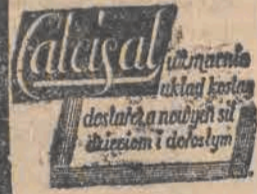 Calcigal
wzmacnia
układ kostny
dostarcza nowych sił
dzieciom i dorosłym